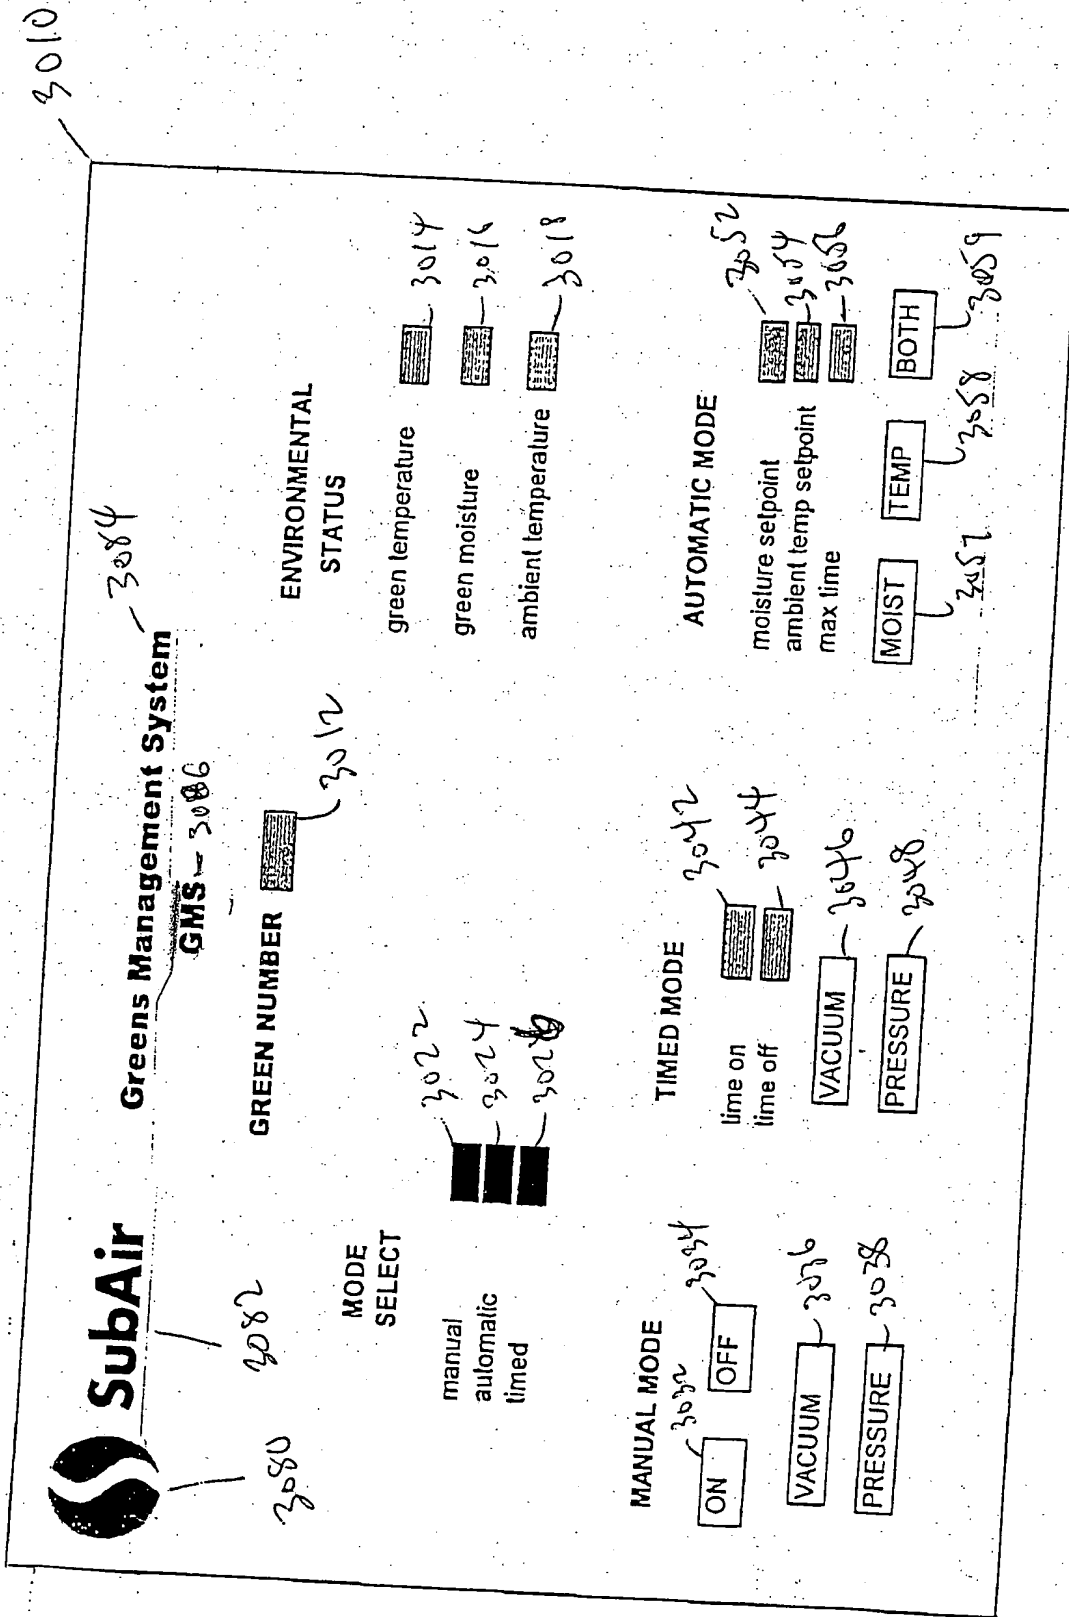 3010
SubAir
Greens Management System 3084
GMS 3086
3080
3082
GREEN NUMBER
3012
MODE
SELECT
manual 3022
automatic 3024
timed
ENVIRONMENTAL
STATUS
green temperature 3014
green moisture 3016
ambient temperature 3018
MANUAL MODE
3032 3034
ON OFF
VACUUM 3036
PRESSURE 3038
TIMED MODE
time on 3042
time off 3044
VACUUM 3046
PRESSURE 3048
AUTOMATIC MODE
moisture setpoint 3052
ambient temp setpoint 3054
max time 3056
MOIST TEMP BOTH
3057 3058 3059